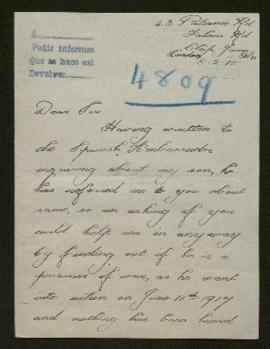 A
Pedir informes
Que se hace asi
Devolver
4809
Dear Sir.
Having written to
the Spanish Ambassador
inquiring about my son, he
has refered me to you about
same, so am asking of you
could help me in any way
by finding out if he is a
prisoner of war, as he went
into action on June 10th 1917
and nothing has been heard